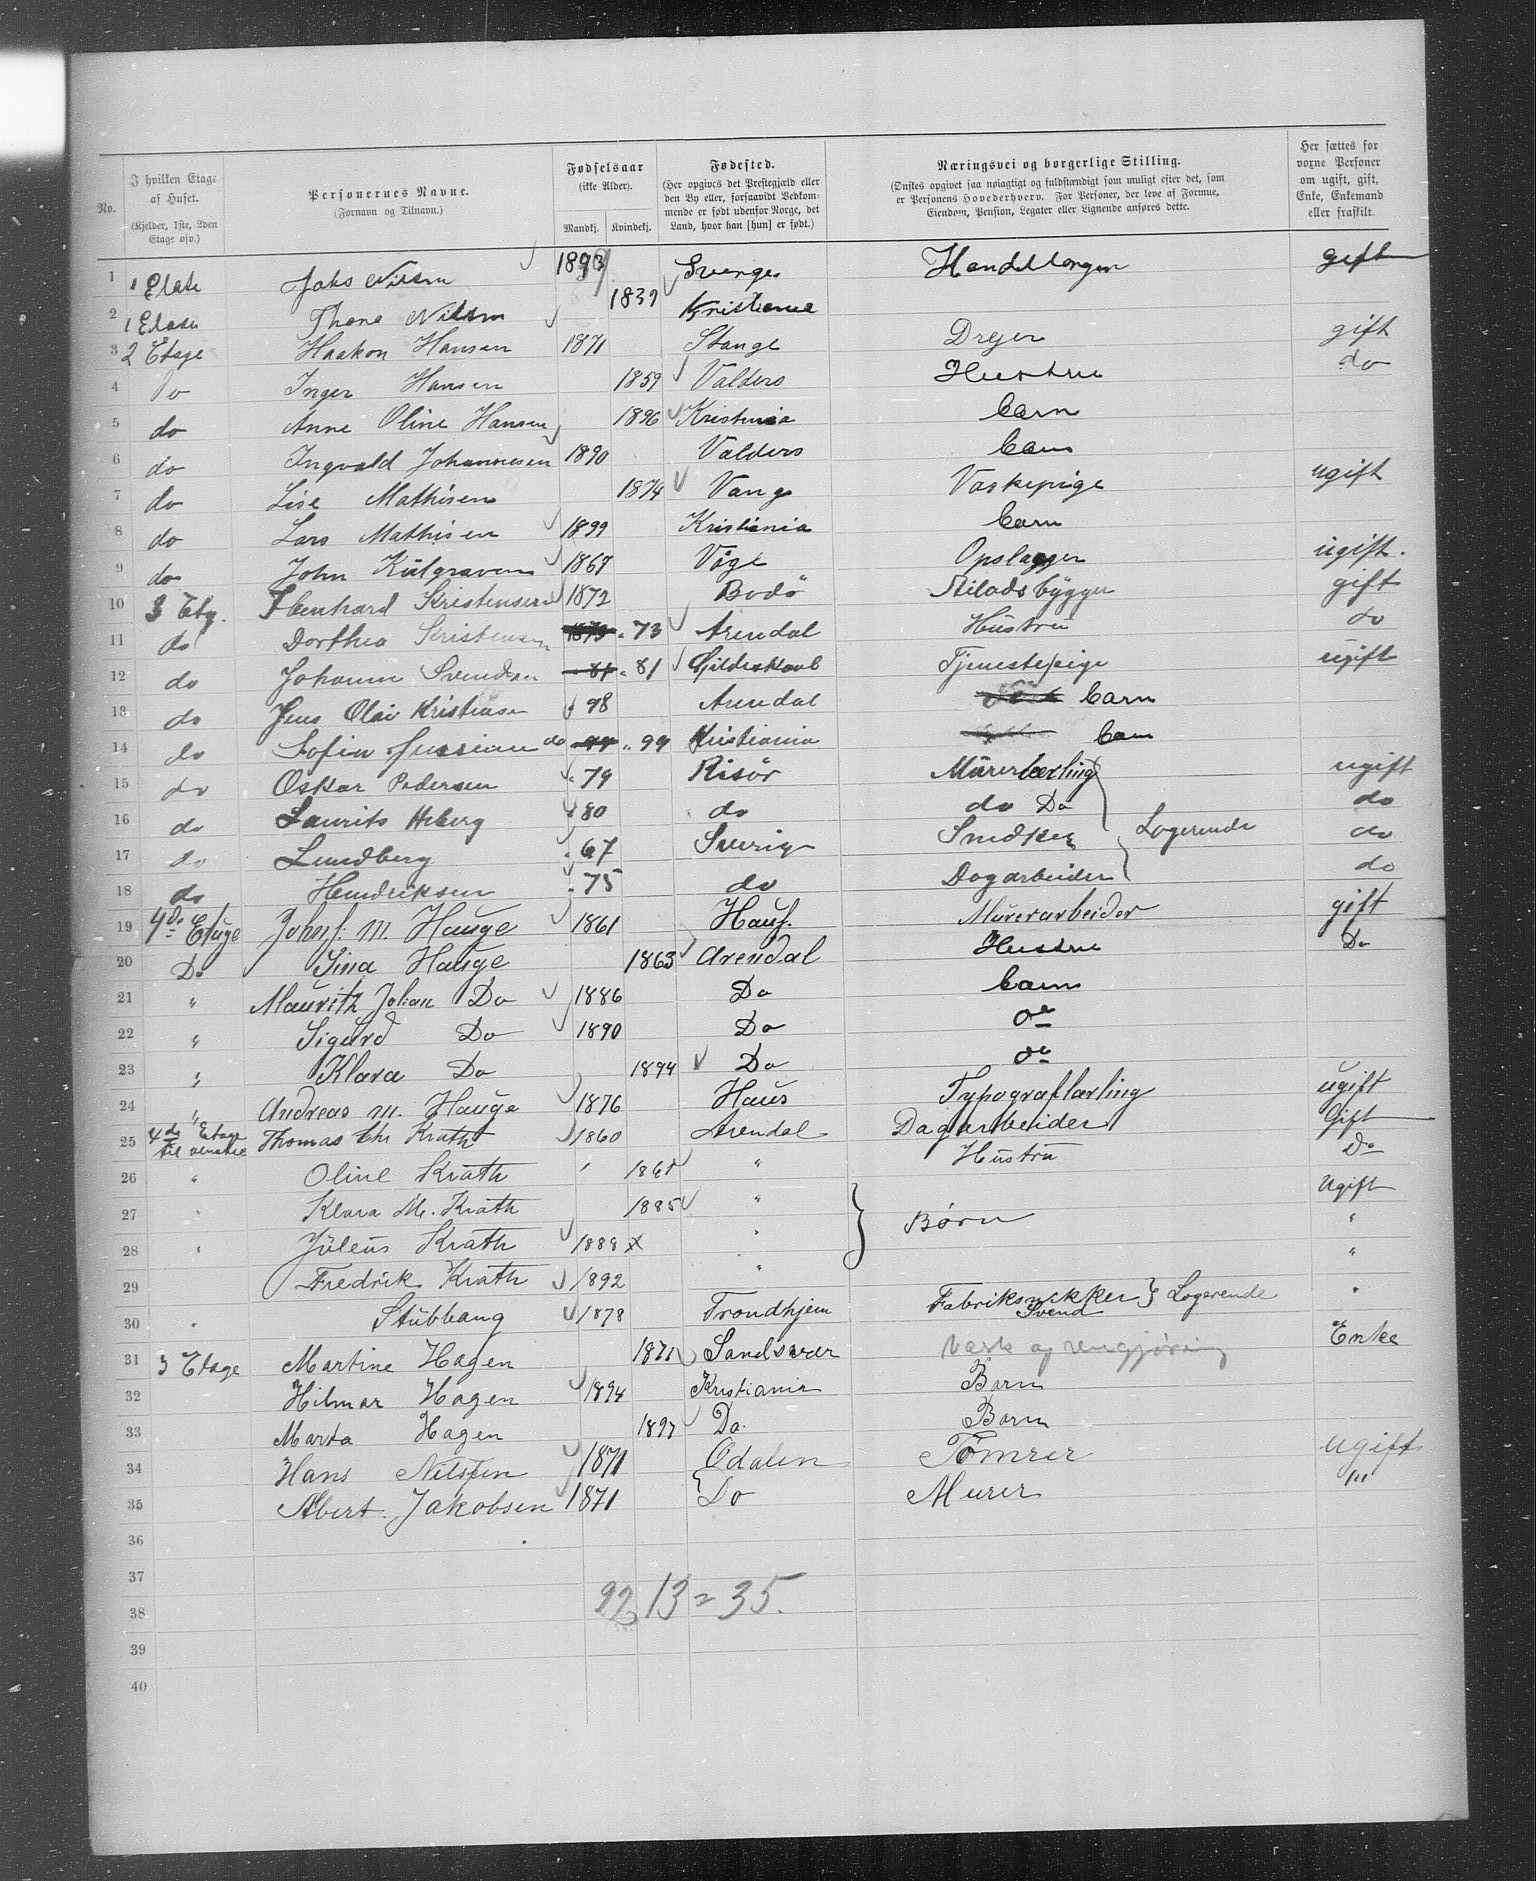 No.
I hvilken Etage af Huset.
(Kjelder, 1ste, 2den Etage osv.)
Personernes Navne.
(Fornavn og Tilnavn.)
Fødselsaar
(ikke Alder).
Mandkj. Kvindekj.
Fødested.
(Her opgives det Prestegjæld eller den By eller, forsaavidt Vedkommende er født udenfor Norge, det Land, hvor han [hun] er født.)
Næringsvei og borgerlige Stilling.
(Ønskes opgivet saa nøiagtigt og fuldstændigt som muligt efter det, som er Personens Hovederhverv. For Personer, der leve af Formue, Eiendom, Pension, Legater eller Lignende anføres dette.
Her sættes for voxne Personer om ugift, gift, Enke, Enkemand eller fraskilt.
1 1 Etase Nilsen Sverge gift
2 1 Etase Thora Nilsen 1839 Kristiania
3 2 Etage Haakon Hansen 1871 Stange Dreier gift
4 Do Inger Hansen 1859 Valders Hustru do
5 do Anne Oline Hansen 1896 Kristiania barn
6 do Ingvald Johannesen 1890 Valders barn
7 do Lise Mathisen 1874 Vang Vaskepige ugift
8 do Lars Mathisen 1899 Kristiania barn
9 do John 1867 Våge Opslager ugift.
10 3 Etg. Kristensen 1872 Bodö Stiladsbygger gift
11 do Dorthea Kristensen " 73 Arendal Hustru do
12 do Svendsen " 81 Gildeskaal Tjenestepige ugift
13 do Jens Olai Kristensen " 98 Arendal barn
14 do Sofin do " 99 Kristiania barn
15 do Oskar Pedersen " 79 Risör Murerlærling ugift
16 do Laurits " 80 do do Do do
Logerende
17 do Lundberg " 67 Sverig Snedker do
18 do Hendriksen " 75 do Dagarbeider do
19 4de Etage M. Hauge 1861 Haus. Murerarbeider gift
20 Do Sina Hauge 1863 Arendal Hustru Do
21 " Mauritz Johan Do 1886 Do barn
22 " Sigurd Do 1890 Do do
23 " Klara Do 1894 Do do
24 " Andreas M. Hauge 1876 Haus Typograflærling ugift
25 4de Etage til venstre Thomas Chr Krath 1860 Arendal Dagarbeider Gift
26 " Oline Krath " Hustru Do
27 " Klara M. Krath 1885 " Ugift
28 " Jüleus Krath 1888 x " } Børn "
29 Fredrik Krath 1892 " "
30 " Stubbaug 1878 Trondhjem Fabriksnikker Svend } Logerende "
31 3 Etage Martine Hagen 1871 Sandsvær Vask og rengjøring Enke
32 Hilmar Hagen 1894 Kristiania Barn
33 Marta Hagen 1897 Do. Barn
34 Hans Nilsen 1871 Odalen Tömrer ugift
35 Albert Jakobsen 1871 Do Murer "'
36
37
38
22 13 = 35.
39
40